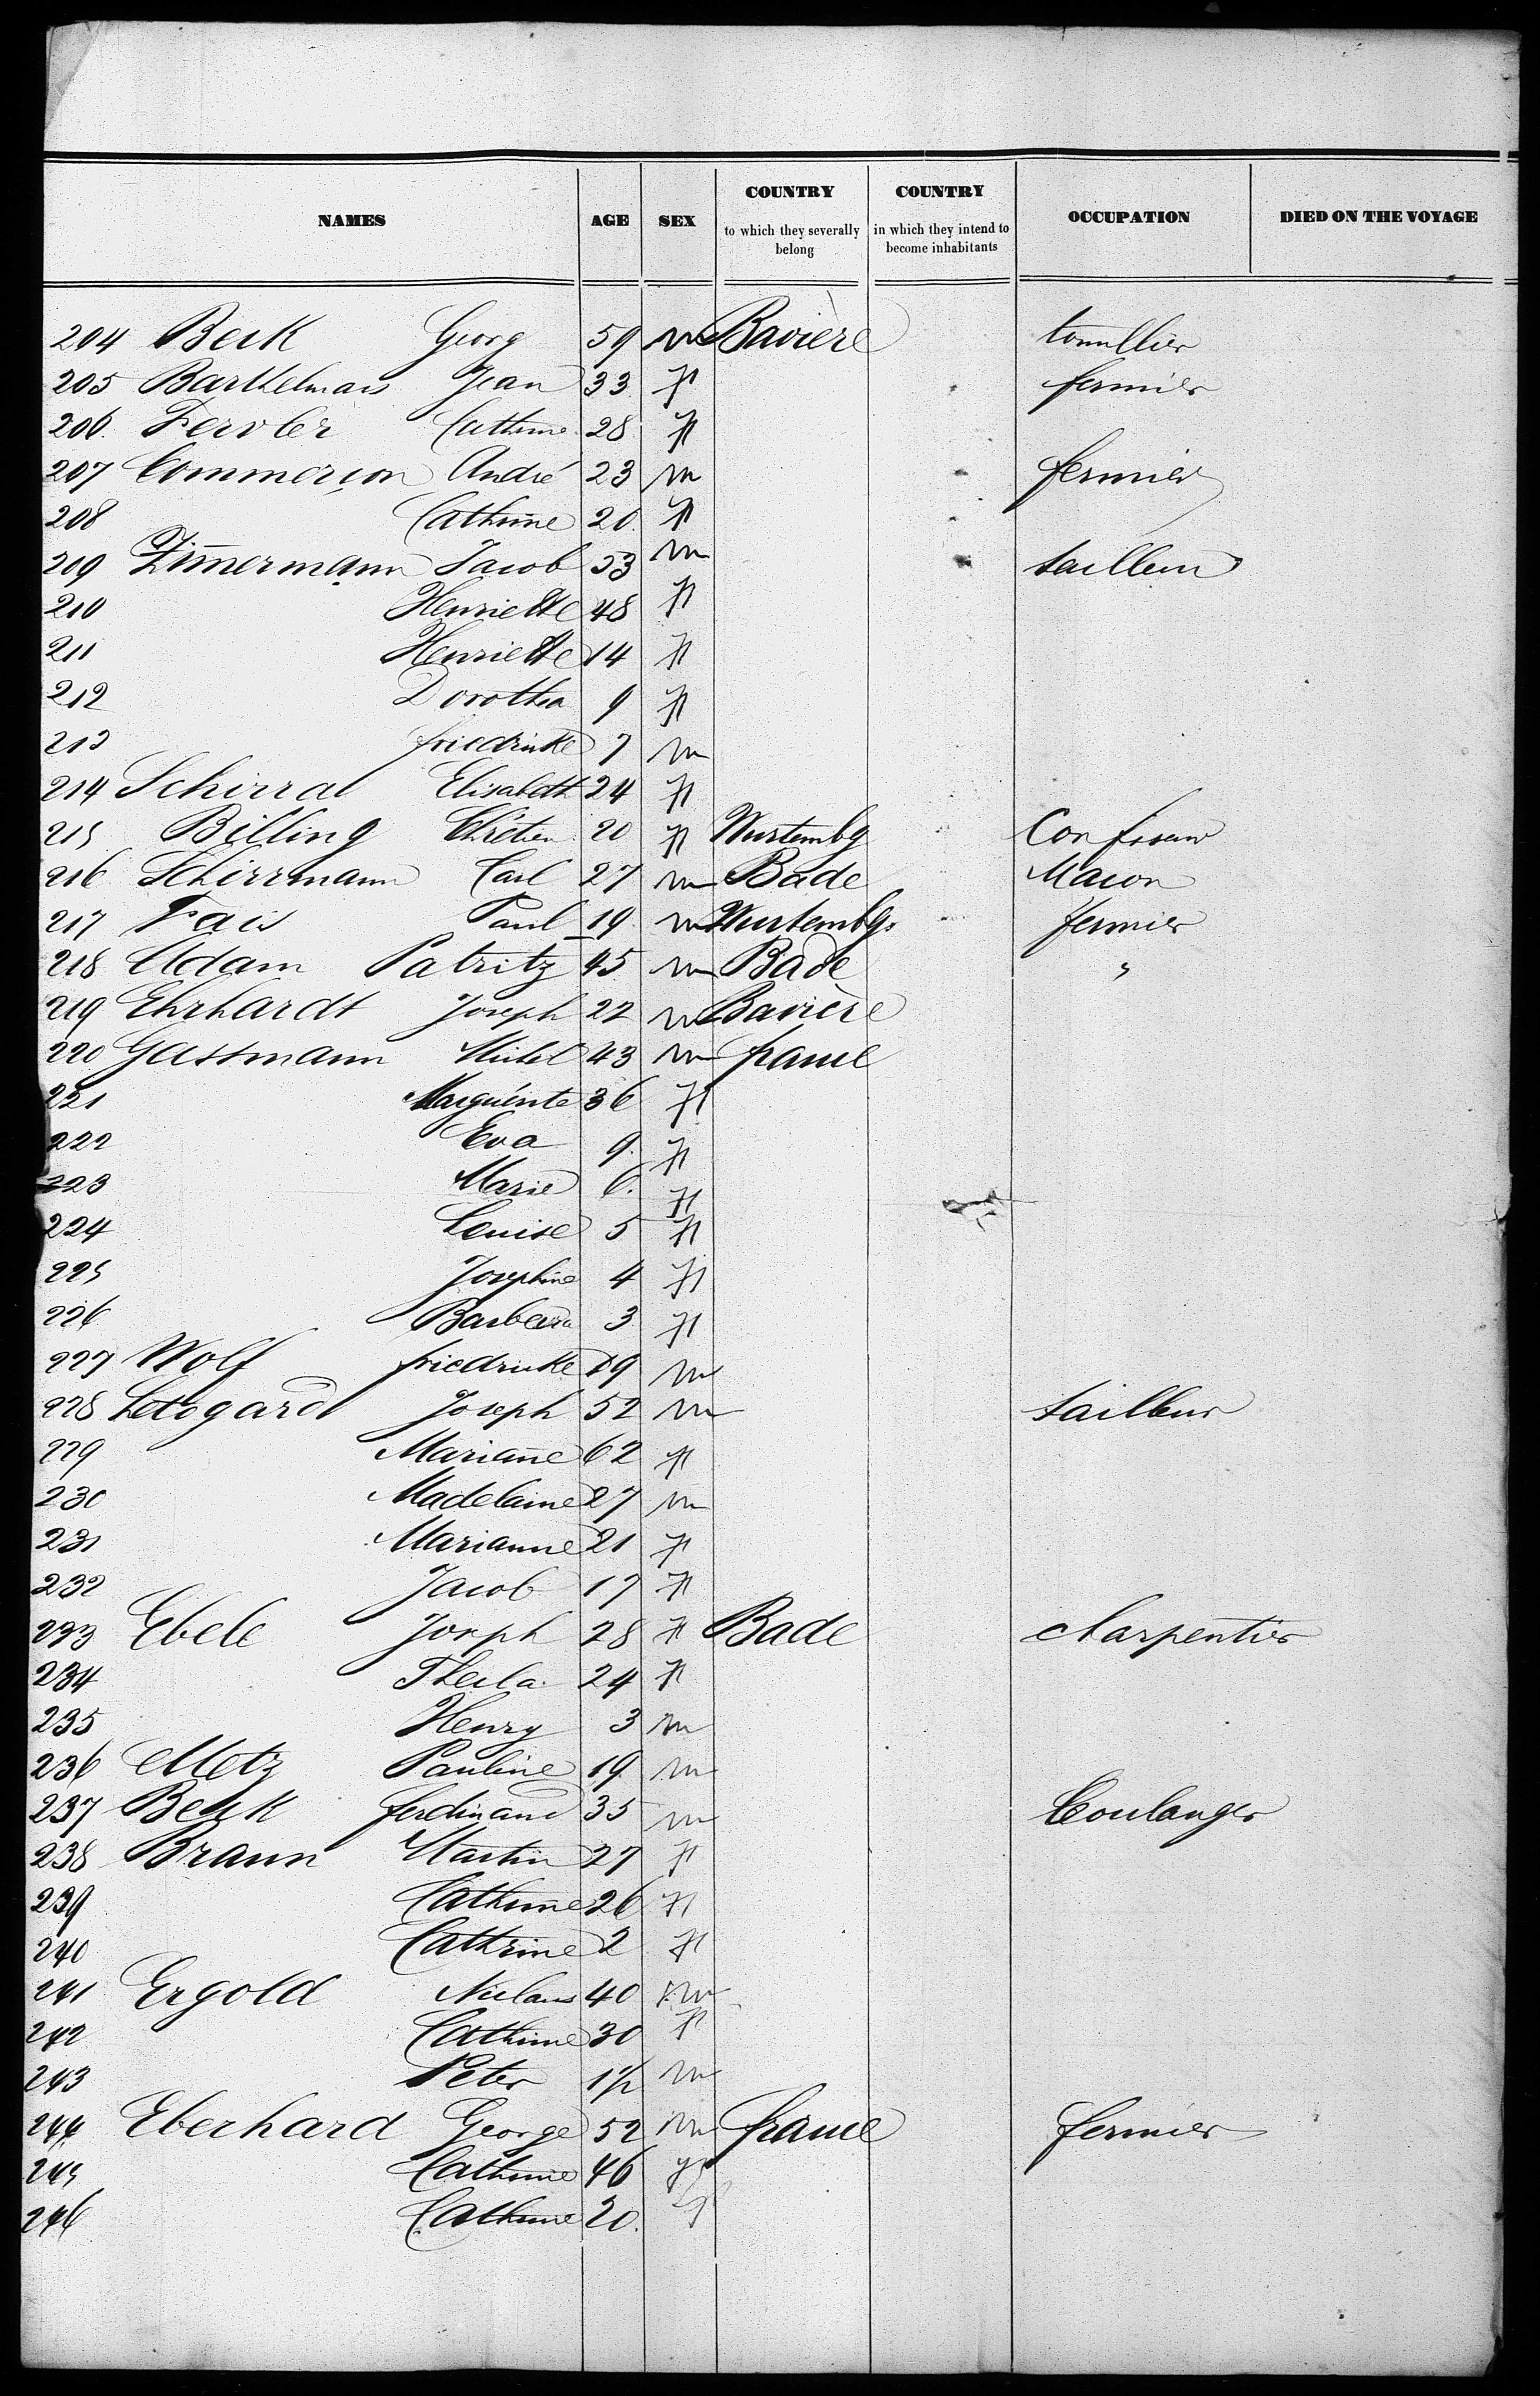 NAMES AGE SEX COUNTRY to which they severally belong COUNTRY in which they intend to become inhabitants OCCUPATION DIED ON THE VOYAGE
204 Beck Georg 59 m Bavière tonnellier
205 Barthelmais Jean 33 f fermier
206. Fervler Cathrine 28 f
207 Commerçon André 23 m fermier
208 Cathrine 20. f
209 Zim̄ermann Jacob 53 m tailleur
210 Henriette 48 f
211 Henriette 14 f
212 Dorothea 9 f
213 friedricke 7 m
214 Schirra Elisabeth 24 f
215 Billing Chrétien 20 f Wurtembg Confiseur
216 Schirrmann Carl 27 m Bade Macon
217 Fais Paul 19 m Wurtembg. fermier
218 Adam Patritz 45 m Bade "
219 Ehrhardt Joseph 22 m Bavière
220 Gassmann Michel 43 m france
221 Marguérite 36 f
222 Eva 9. f
223 Marie 6. f
224 Louise 5 f
225 Josephine 4 f
226 Barbara 3 f
227 Wolf friedricke 19 m
228 Letogard Joseph 52 m tailleur
229 Marian̄e 62 f
230 Madelaine 27 m
231 Marianne 21 f
232 Jacob 17 f
233 Ebele Joseph 28 f Bade charpentier
234 Thecla 24 f
235 Henry 3 m
236 Metz Pauline 19 m
237 Beck ferdinand 35 m boulanger
238 Braun Martin 27 f
239 Cathrine 26 f
240 Cathrine 2 f
241 Ergold Niclaus 40 m
242 Cathrine 30 f
243 Peter 1½ m
244 Eberhard George 52 m france fermier
245 Cathrine 46 f
246 Cathrine 20. f